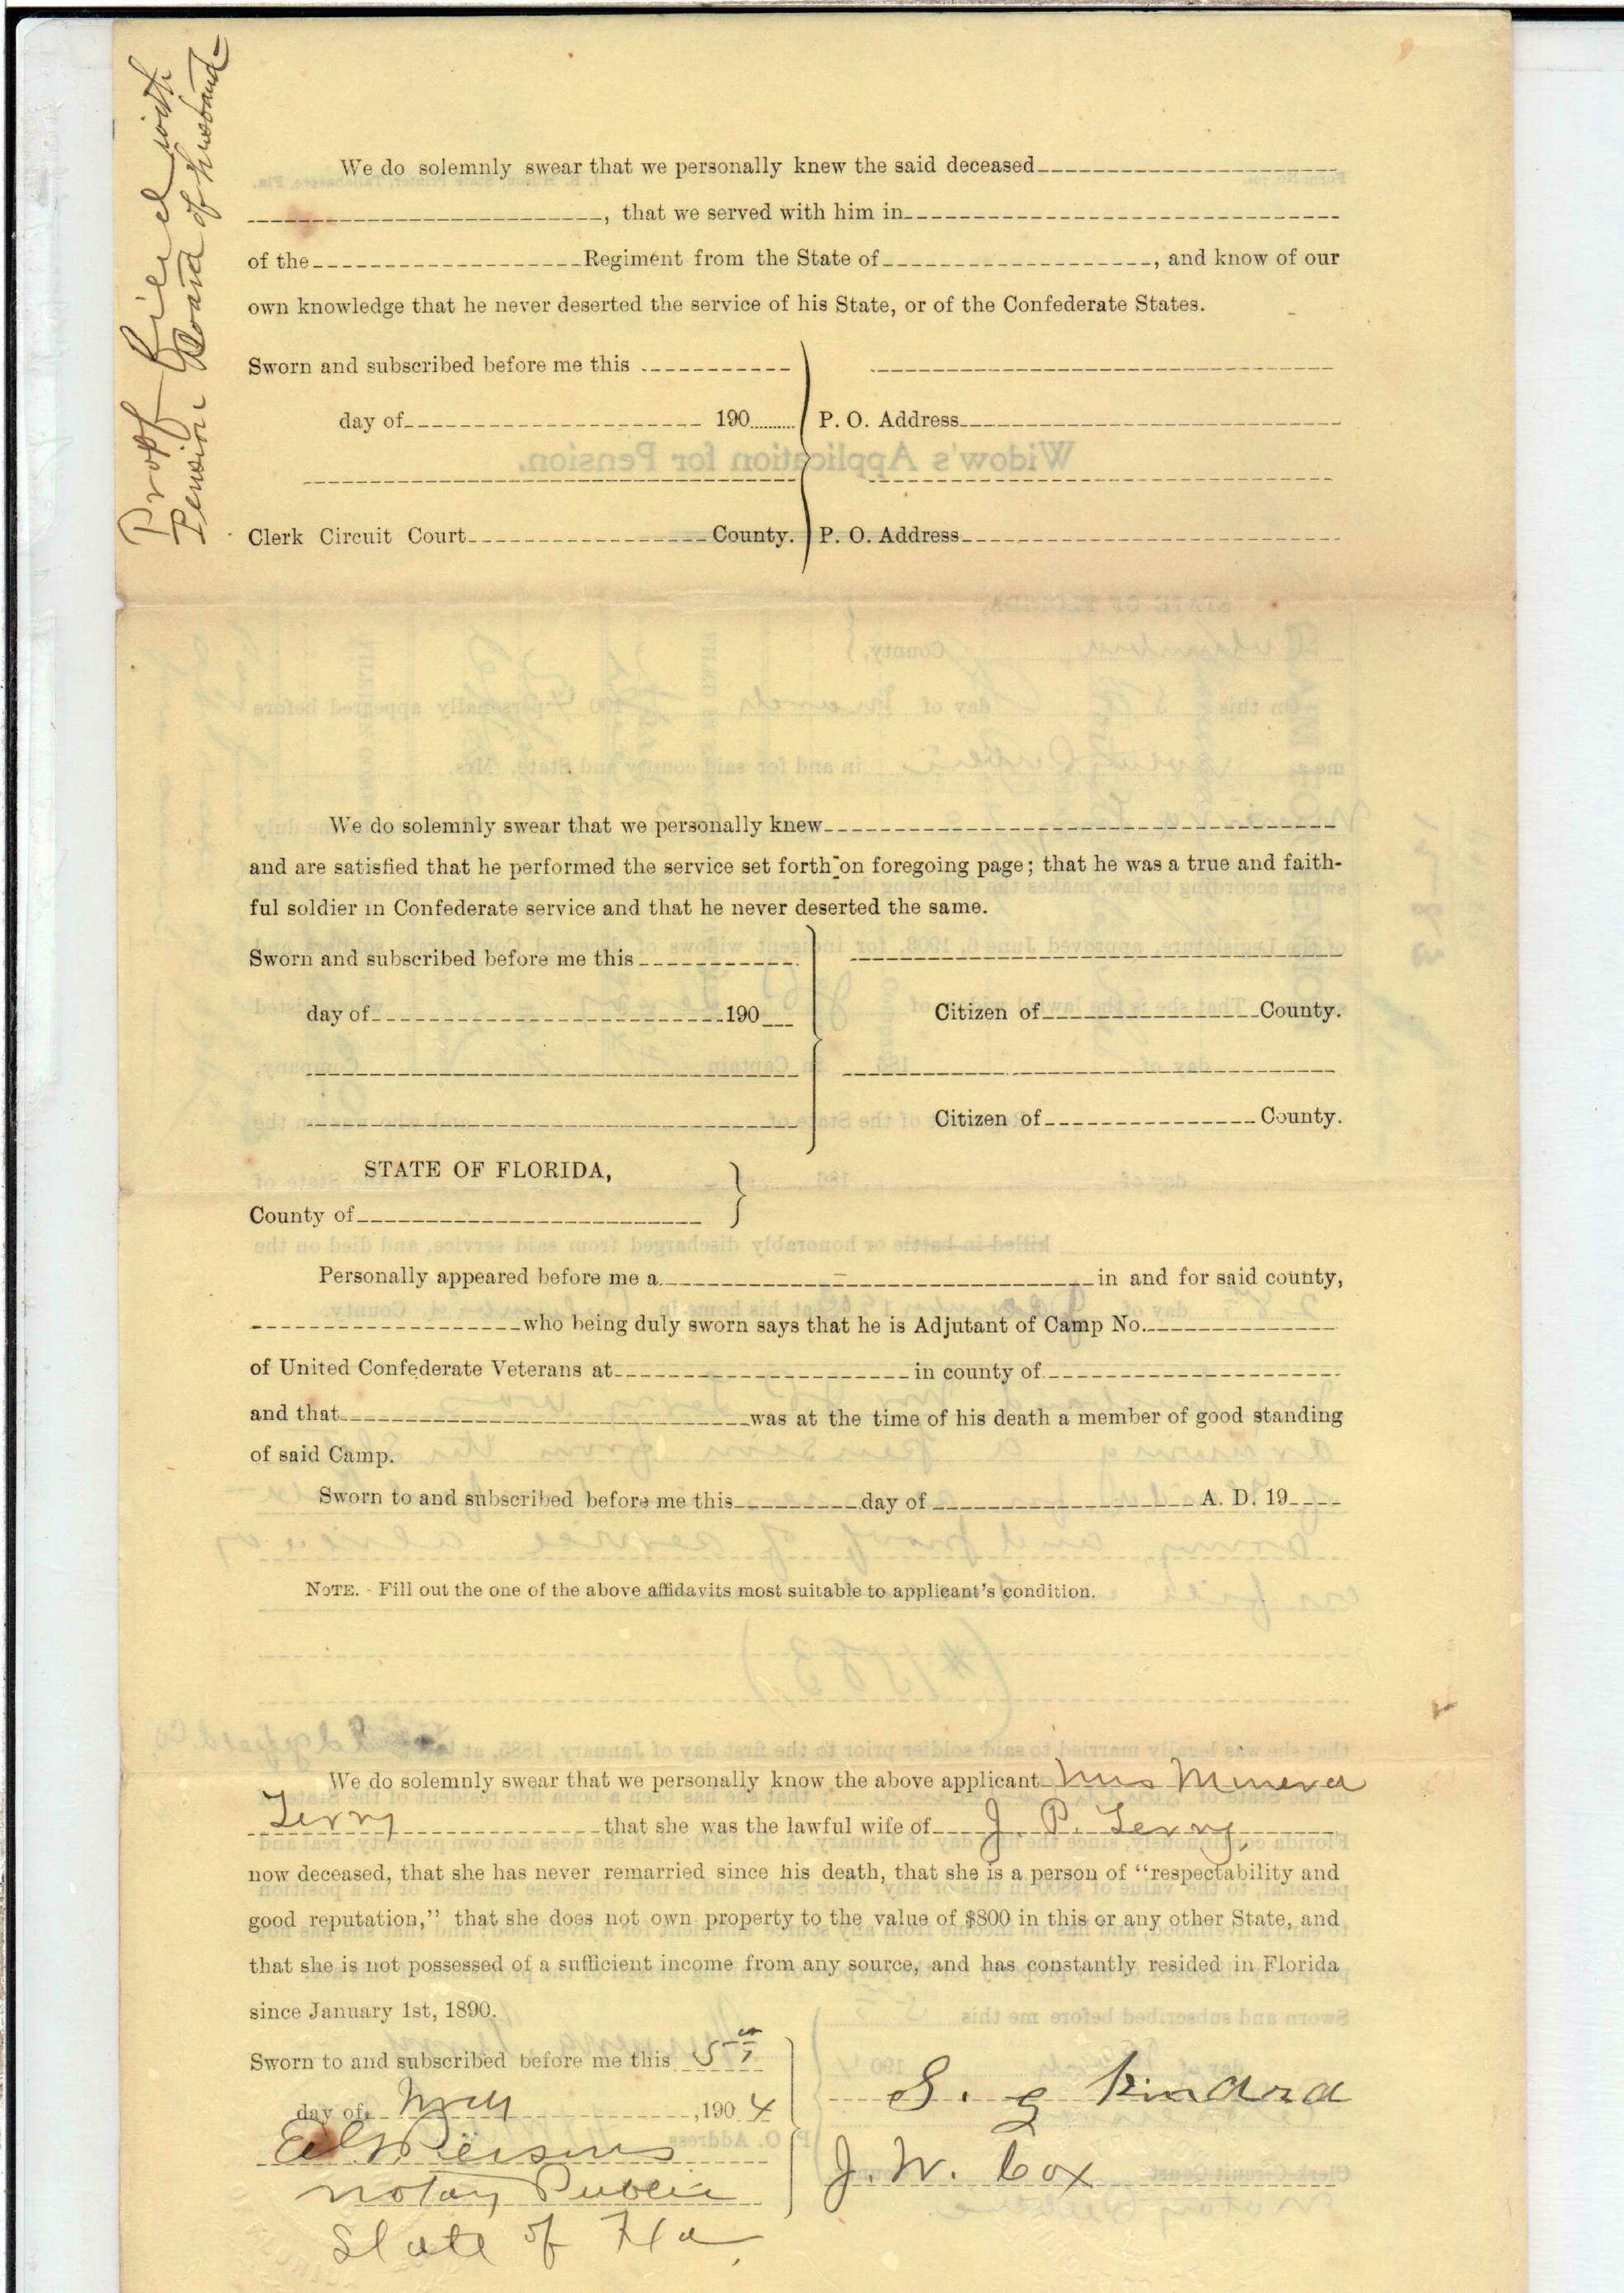 Proof Filed with
Pension Board of husband
We do solemnly swear that we personally knew the said deceased
, that we served with him in
of the Regiment from the State of , and know of our
own knowledge that he never deserted the service of his State, or of the Confederate States.
Sworn and subscribed before me this
day of 190
P. O. Address
Widow's Application for Pension.
Clerk Circuit Court County.
P. O. Address
We do solemnly swear that we personally knew
and are satisfied that he performed the service set forth on foregoing page; that he was a true and faith-
ful soldier in Confederate service and that he never deserted the same.
Sworn and subscribed before me this
day of 190
Citizen of County.
Citizen of County.
STATE OF FLORIDA,
County of
Personally appeared before me a in and for said county,
who being duly sworn says that he is Adjutant of Camp No.
of United Confederate Veterans at in county of
and that was at the time of his death a member of good standing
of said Camp.
Sworn to and subscribed before me this day of A. D. 19
NOTE. - Fill out the one of the above affidavits most suitable to applicant's condition.
We do solemnly swear that we personally know the above applicant Mrs Minerva
Terry that she was the lawful wife of J. P. Terry,
now deceased, that she has never remarried since his death, that she is a person of "respectability and
good reputation," that she does not own property to the value of $800 in this or any other State, and
that she is not possessed of a sufficient income from any source, and has constantly resided in Florida
since January 1st, 1890.
Sworn to and subscribed before me this 5th
day of , 1904
S. G. Kinard
J. W. Cox
Notary Public
State of Fla